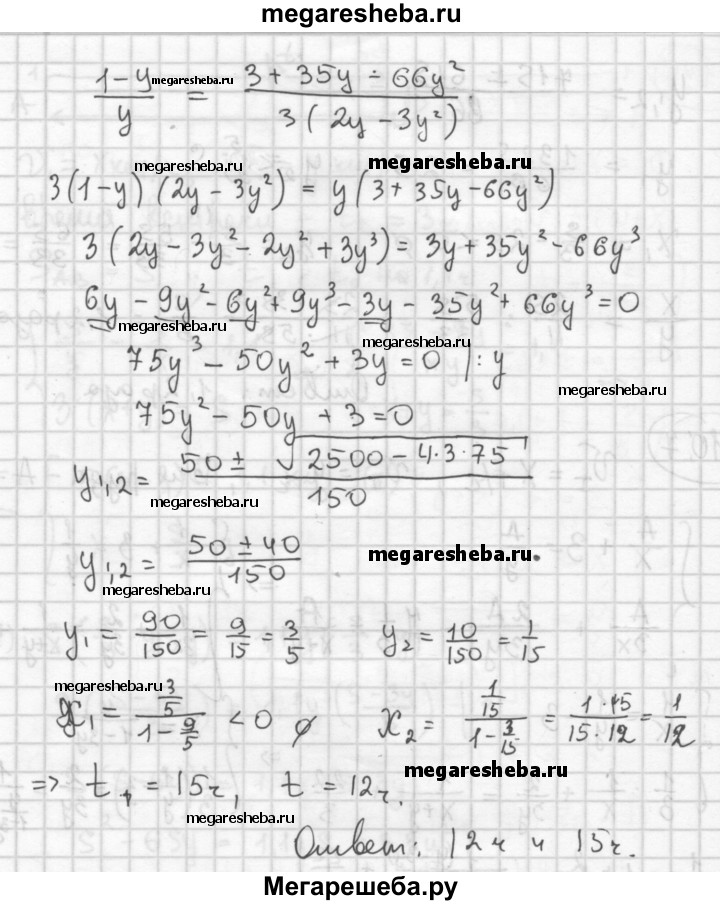 megaresheba.ru
(1-y)/y = (3 + 35y - 66y²)/(3(2y - 3y²)).
megaresheba.ru
megaresheba.ru megaresheba.ru
3(1-y)(2y - 3y²) = y(3 + 35y - 66y²)
3(2y - 3y² - 2y² + 3y³) = 3y + 35y² - 66y³
6y - 9y² - 6y² + 9y³ - 3y - 35y² + 66y³ = 0
megaresheba.ru megaresheba.ru
75y³ - 50y² + 3y = 0 |: y
megaresheba.ru
75y² - 50y + 3 = 0
y₁,₂ = (50 ± √(2500 - 4·3·75))/150
megaresheba.ru
y₁,₂ = (50 ± 40)/150 megaresheba.ru.
megaresheba.ru
y₁ = 90/150 = 9/15 = 3/5 y₂ = 10/150 = 1/15
megaresheba.ru
x₁ = (3/5)/(1 - 9/5) < 0 ∅ x₂ = (1/15)/(1 - 3/15) = (1·15)/(15·12) = 1/12
megaresheba.ru
=> t₁ = 15ч, t = 12ч.
megaresheba.ru
Ответ: 12ч и 15ч.
Мегарешеба.ру